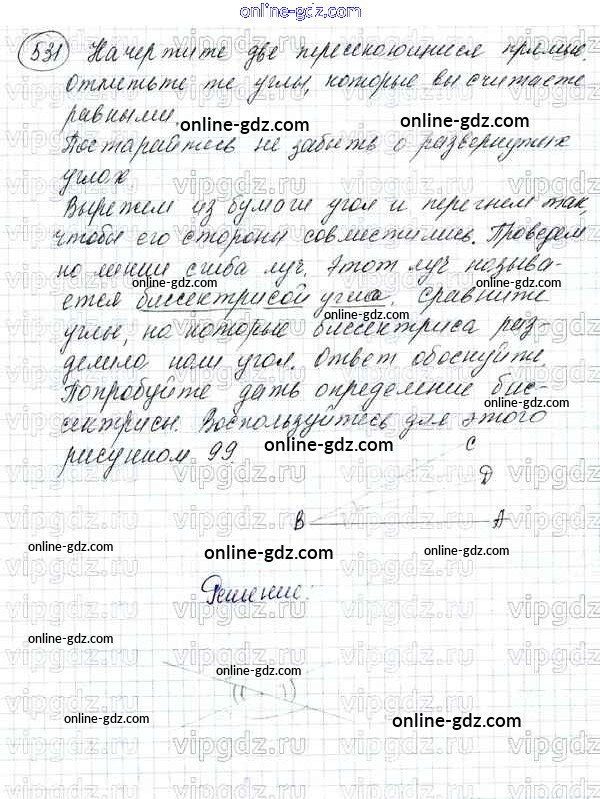 online-gdz.com
531 Начертите две пересекающиеся прямые.
Отметьте те углы, которые вы считаете
равными.
online-gdz.com
Постарайтесь не забыть о развернутых
углах
Вырежем из бумаги угол и перегнем так,
чтобы его стороны совместились. Проведем
по линии сгиба луч. Этот луч называ-
ется биссектрисой угла. Сравните
углы, на которые биссектриса раз-
делила наш угол. Ответ обоснуйте.
Попробуйте дать определение бис-
сектрисы. Воспользуйтесь для этого
рисунком 99.
online-gdz.com
C
D
B A
online-gdz.com
online-gdz.com
online-gdz.com
Решение:
online-gdz.com
online-gdz.com
online-gdz.com
online-gdz.com